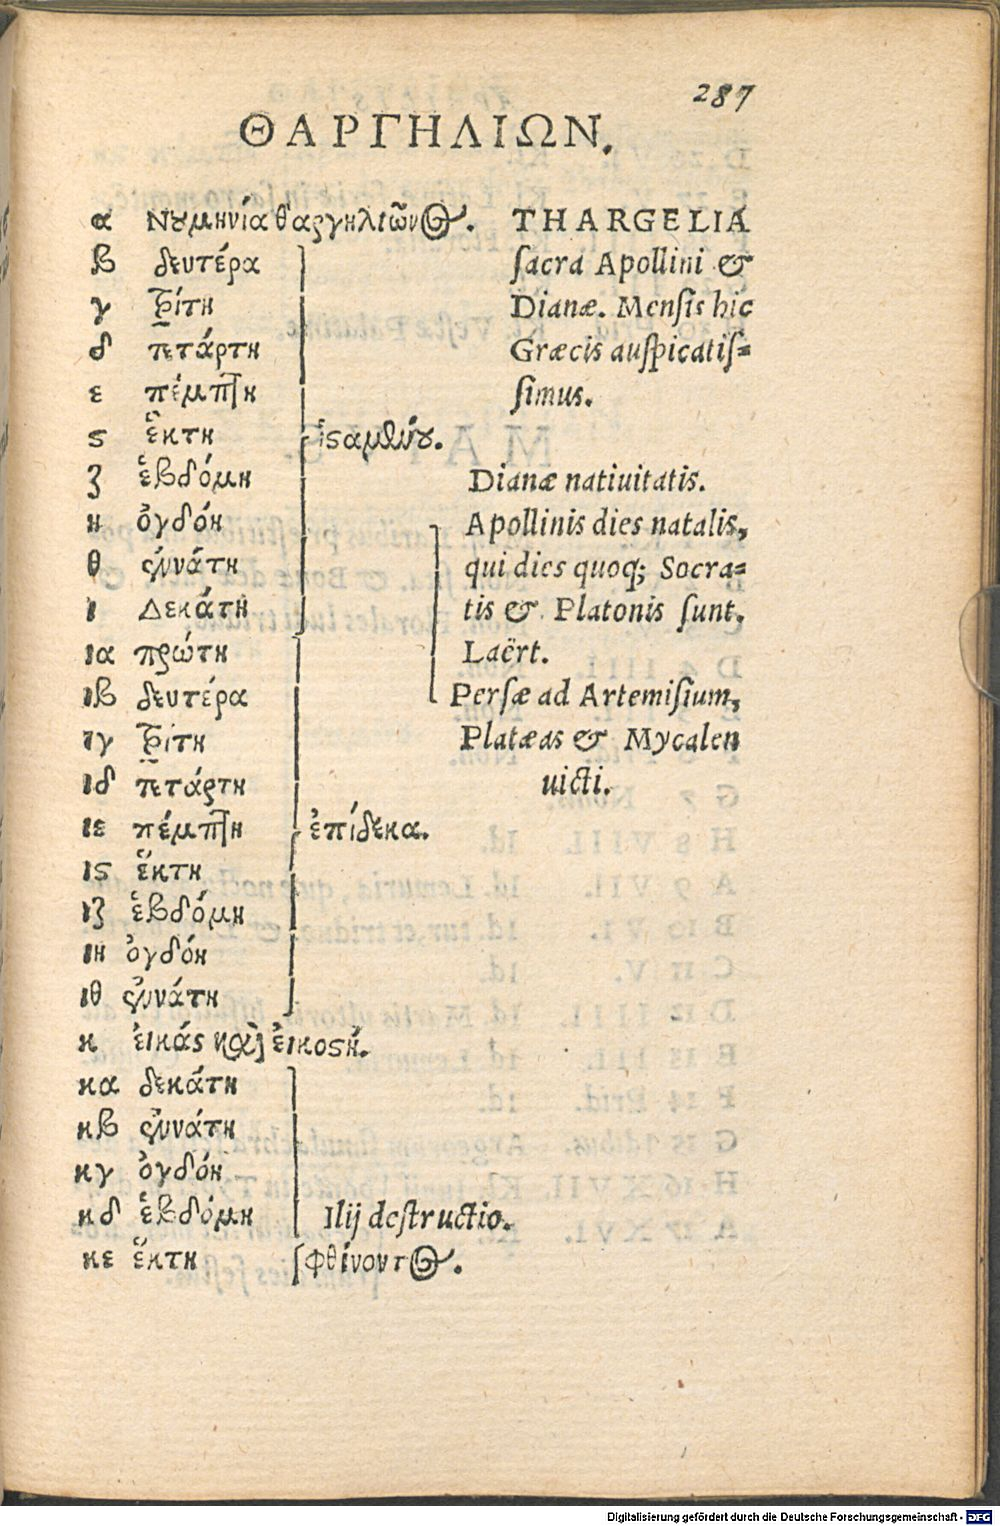 287
ΘΑΡΓΗΛΙΩΝ.
α Νουμηνία θαργηλιῶνος. THARGELIA
β δευτέρα sacra Apollini &
γ τρίτη Dianæ. Mensis hic
δ πετάρτη Græcis auspicatis-
ε πέμπτη simus.
ς ἕκτη ἱσταμένου.
ζ ἑβδόμη Dianæ natiuitatis.
η ὀγδόη Apollinis dies natalis,
θ ἐννάτη qui dies quoq; Socra-
ι Δεκάτη tis & Platonis sunt.
ια πρώτη Laërt.
ιβ δευτέρα Persæ ad Artemisium,
ιγ τρίτη Platæas & Mycalen
ιδ πετάρτη uicti.
ιε πέμπτη ἐπίδεκα.
ις ἕκτη
ιζ ἑβδόμη
ιη ὀγδόη
ιθ ἐννάτη
κ εἰκάς καὶ εἰκοστή.
κα δεκάτη
κβ ἐννάτη
κγ ὀγδόη
κδ ἑβδόμη Ilij destructio.
κε ἕκτη φθίνοντος.
Digitalisierung gefördert durch die Deutsche Forschungsgemeinschaft - DFG